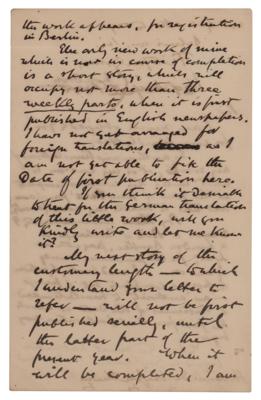 the work appears, for registration
in Berlin.
The only new work of mine
which is now in course of completion
is a short story, which will
occupy not more than three
weekly parts, when it is first
published in English newspapers.
I have not yet arranged for
foreign translations, as I
am not yet able to fix the
Date of first publication here.
If you think it desirable
to treat for the German translation
of this little work, will you
kindly write and let me know
it?
My next story of the
customary length — to which
I understand your letter to
refer — will not be first
published serially, until
the latter part of the
present year. When it
will be completed, I am